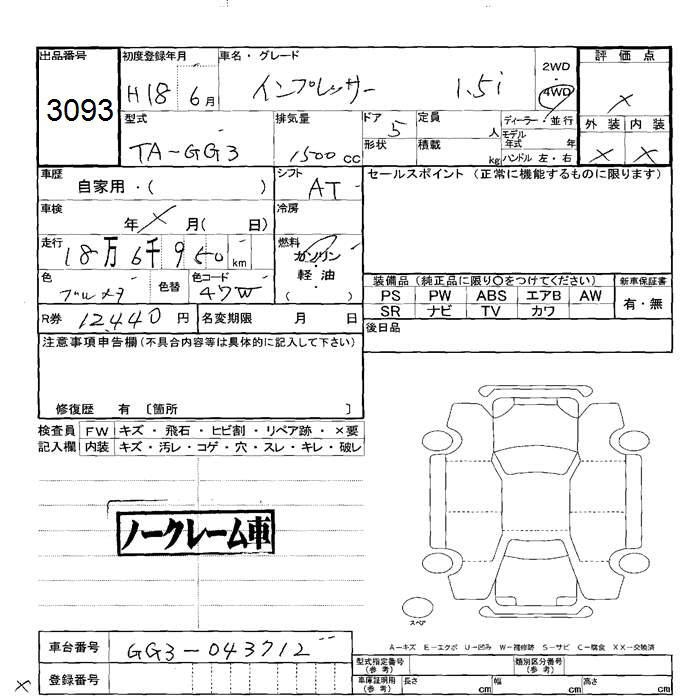 出品番号 初度登録年月 車名・グレード 2WD 評価点
3093 H18 6月 インプレッサー 1.5i 4WD ×
型式 排気量 ドア 5 定員 人 ディーラー・並行 外装 内装
TA-GG3 1500 cc 形状 積載 kg モデル年式 年 ハンドル 左・右 × ×
車歴 自家用・( ) シフト AT セールスポイント (正常に機能するものに限ります)
車検 年 × 月( 日) 冷房
走行 18万6千950 km 燃料 ガソリン・軽油 ( )
色 ブルメタ 色替 色コード 47W 装備品 (純正品に限り○をつけてください) 新車保証書
PS PW ABS エアB AW 有・無
R券 12,440 円 名変期限 月 日 SR ナビ TV カワ
注意事項申告欄 (不具合内容等は具体的に記入して下さい) 後日品
修復歴 有 〔箇所 〕
検査員 FW キズ・飛石・ヒビ割・リペア跡・×要
記入欄 内装 キズ・汚レ・コゲ・穴・スレ・キレ・破レ
ノークレーム車
スペア
A-キズ E-エクボ U-凹み W-補修跡 S-サビ C-腐食 XX-交換済
車台番号 GG3-043712
型式指定番号 (参考) 類別区分番号 (参考)
× 登録番号 車庫証明用 (参考) 長さ cm 幅 cm 高さ cm